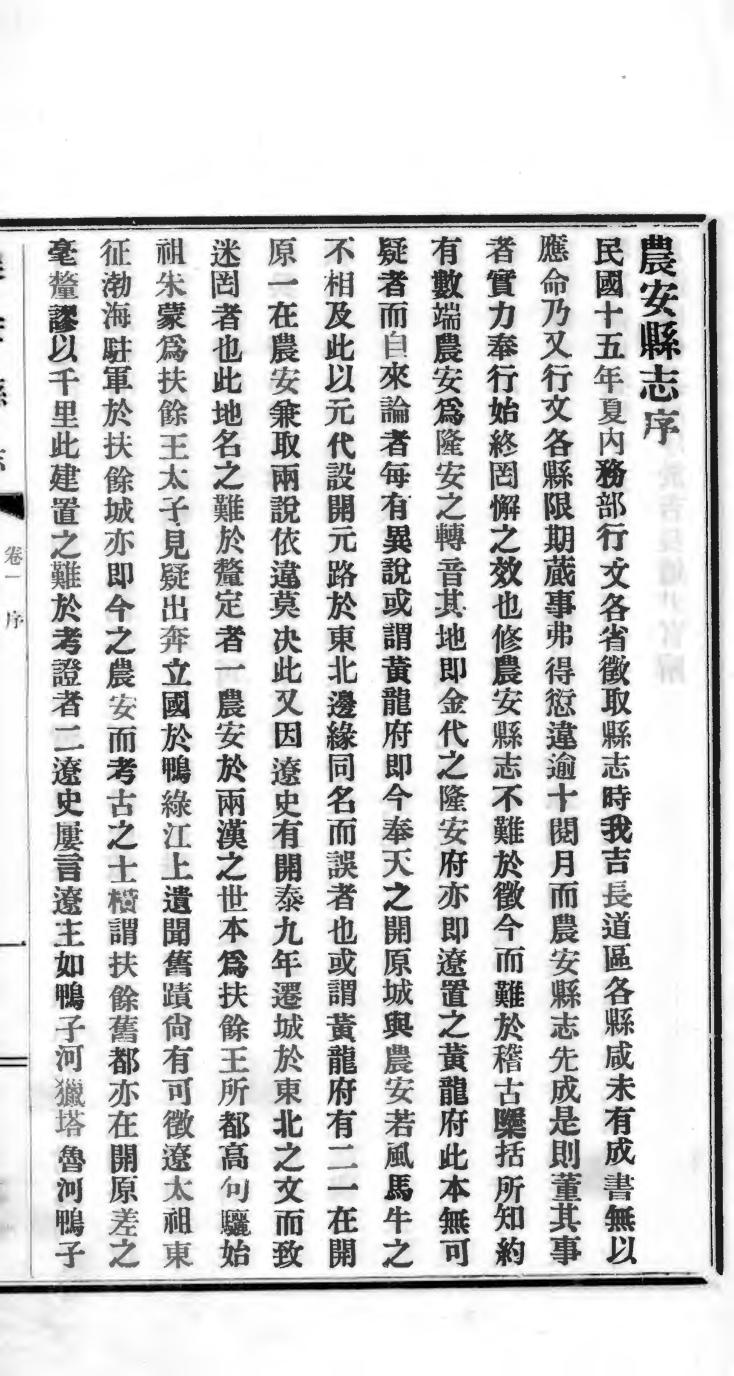 農安縣志序
民國十五年夏內務部行文各省徵取縣志時我吉長道區各縣咸未有成書無以
應命乃又行文各縣限期蕆事弗得愆違逾十閱月而農安縣志先成是則董其事
者實力奉行始終罔懈之效也修農安縣志不難於徵今而難於稽古檃括所知約
有數端農安爲隆安之轉音其地即金代之隆安府亦即遼置之黃龍府此本無可
疑者而自來論者每有異說或謂黃龍府即今奉天之開原城與農安若風馬牛之
不相及此以元代設開元路於東北邊緣同名而誤者也或謂黃龍府有二一在開
原一在農安兼取兩說依違莫决此又因遼史有開泰九年遷城於東北之文而致
迷罔者也此地名之難於釐定者一農安於兩漢之世本爲扶餘王所都高句驪始
祖朱蒙爲扶餘王太子見疑出奔立國於鴨綠江上遺聞舊蹟尙有可徵遼太祖東
征渤海駐軍於扶餘城亦即今之農安而考古之士槓謂扶餘舊都亦在開原差之
毫釐謬以千里此建置之難於考證者二遼史屢言遼主如鴨子河獵塔魯河鴨子
卷一 序